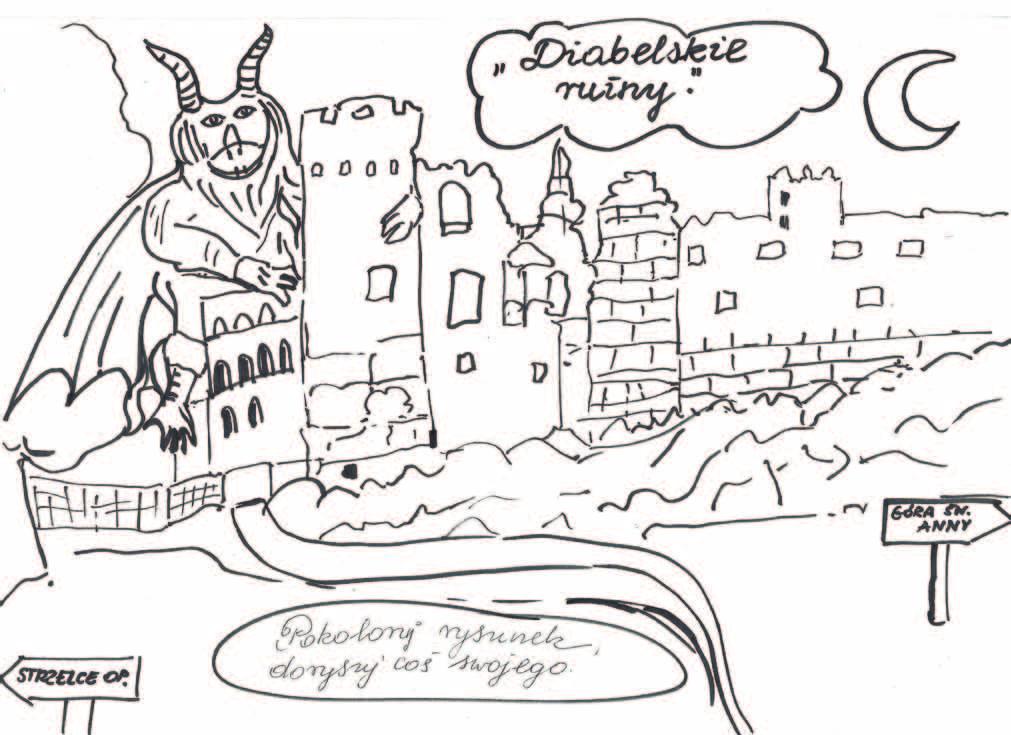 „Diabelskie
ruiny."
GÓRA ŚW.
ANNY
Pokoloruj rysunek,
dorysuj coś swojego.
STRZELCE OP.